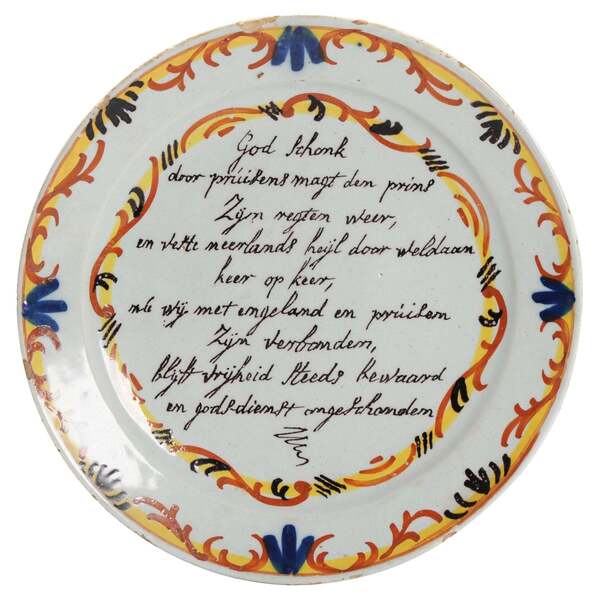 God schonk
door prúisens magt den prins
Zyn regten weer,
en vette neerlands heyl door weldaan
keer op keer,
nú wy met engeland en prúisen
Zyn verbonden,
blyft vryheid steeds bewaard
en godsdienst ongeschonden